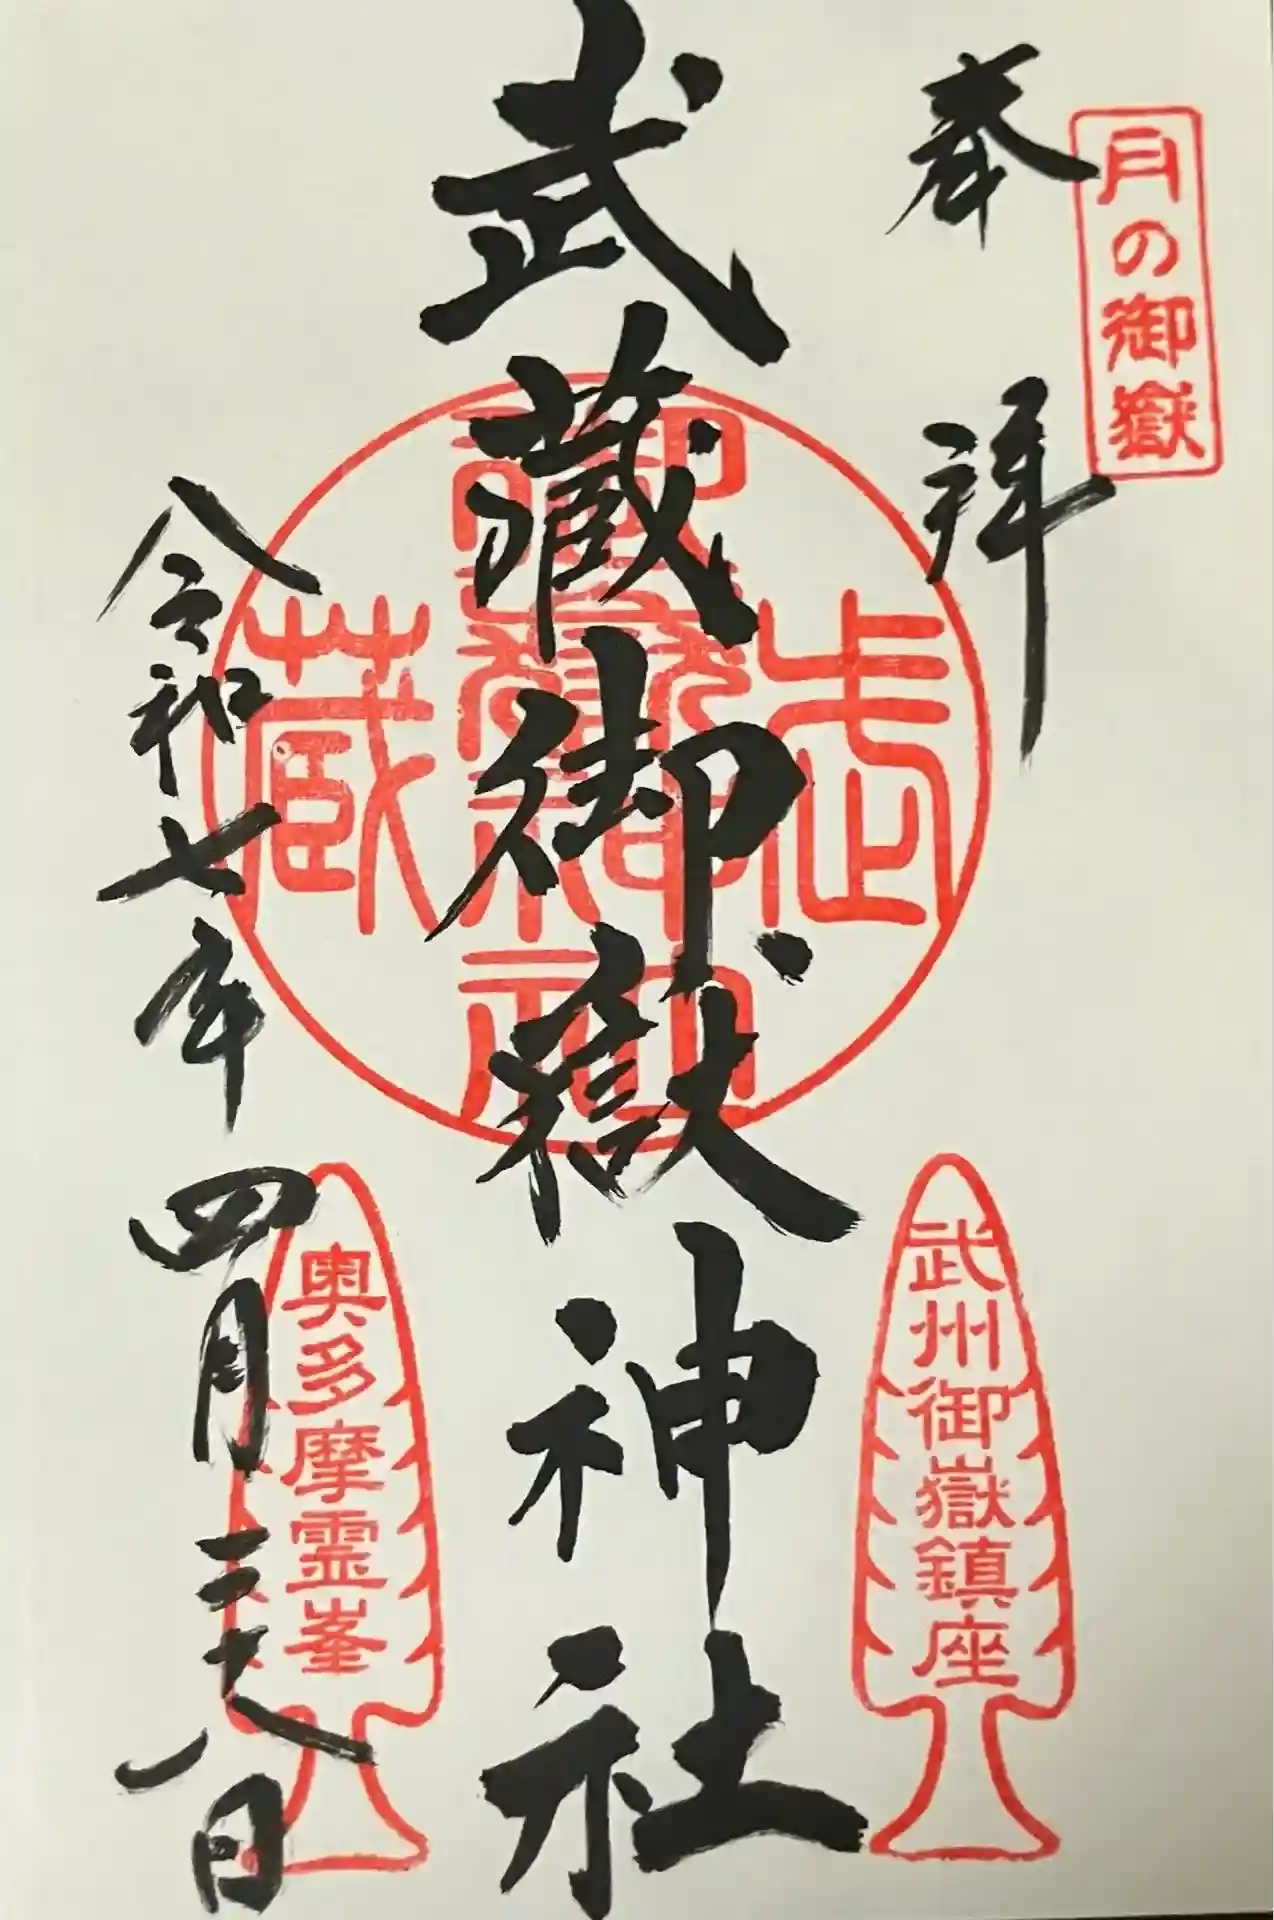 月の御嶽
奉拝
武蔵御嶽神社
令和七年四月二十八日
武蔵
武州御嶽鎮座
奥多摩霊峯